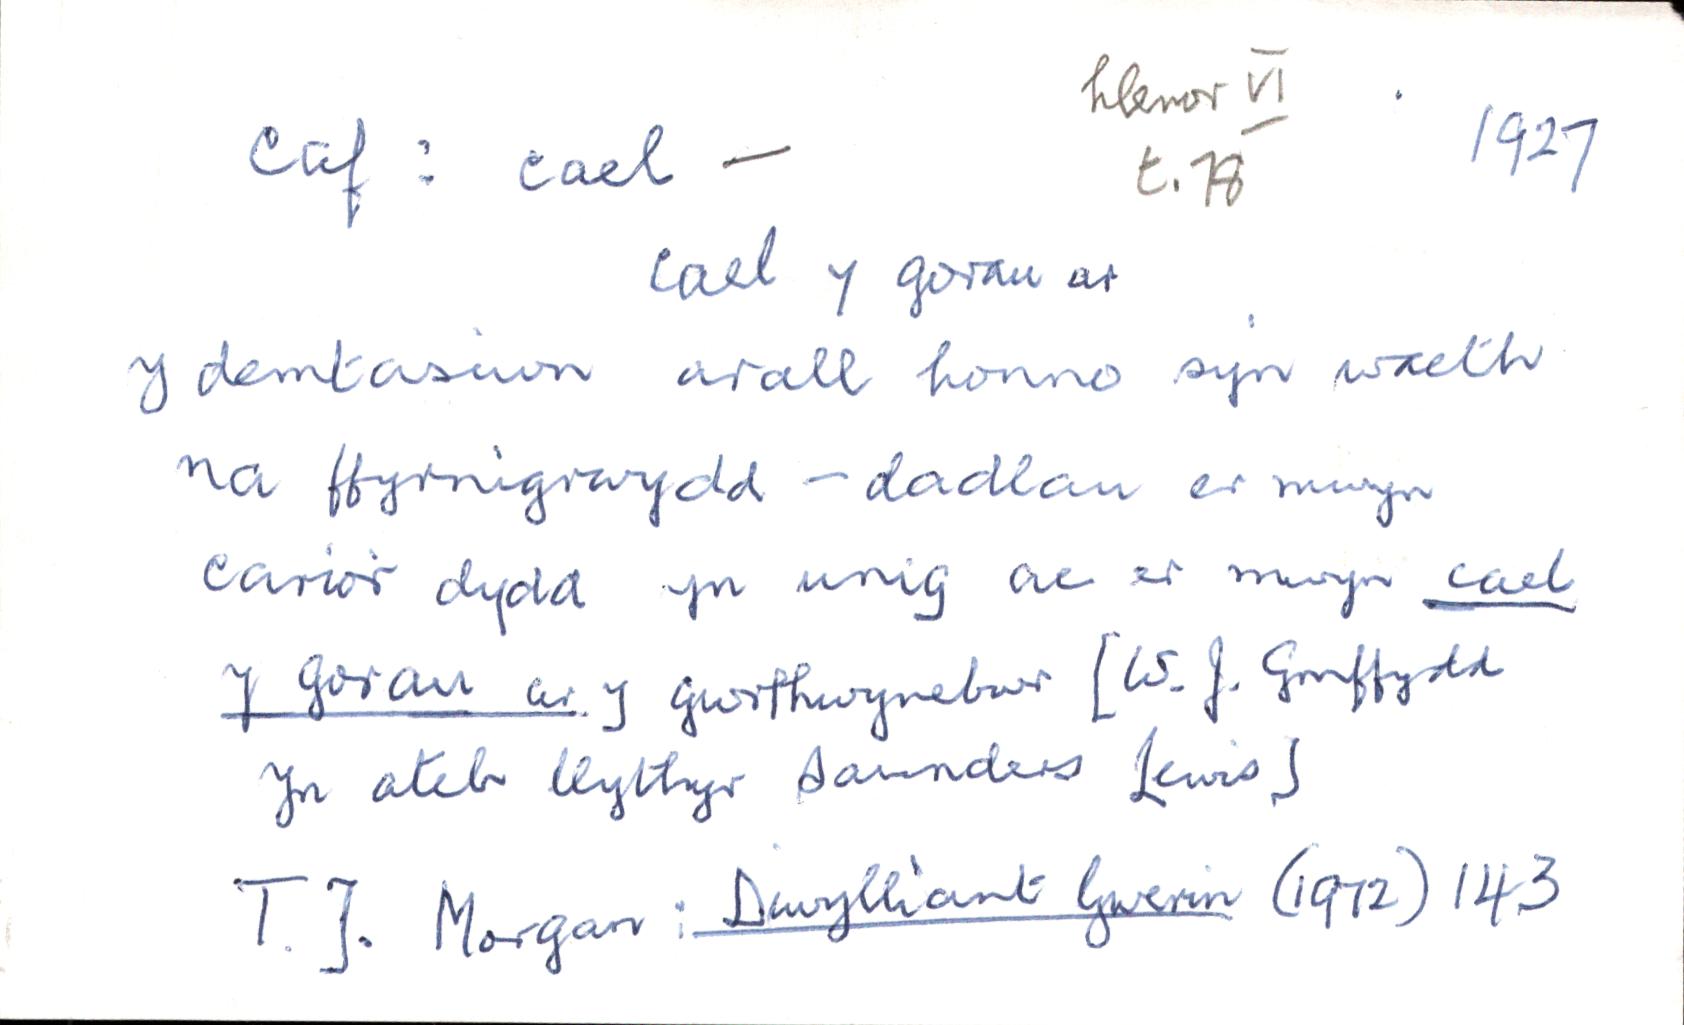 Llenor VI
t. 78
1927
caf : cael —
cael y gorau ar
y demtasiwn arall honno sy'n waeth
na ffyrnigrwydd – dadlau er mwyn
cario'r dydd yn unig ac er mwyn cael
y gorau ar y gwrthwynebwr [W. J. Gruffydd
yn ateb llythyr Saunders Lewis]
T. J. Morgan : Diwylliant Gwerin (1972) 143